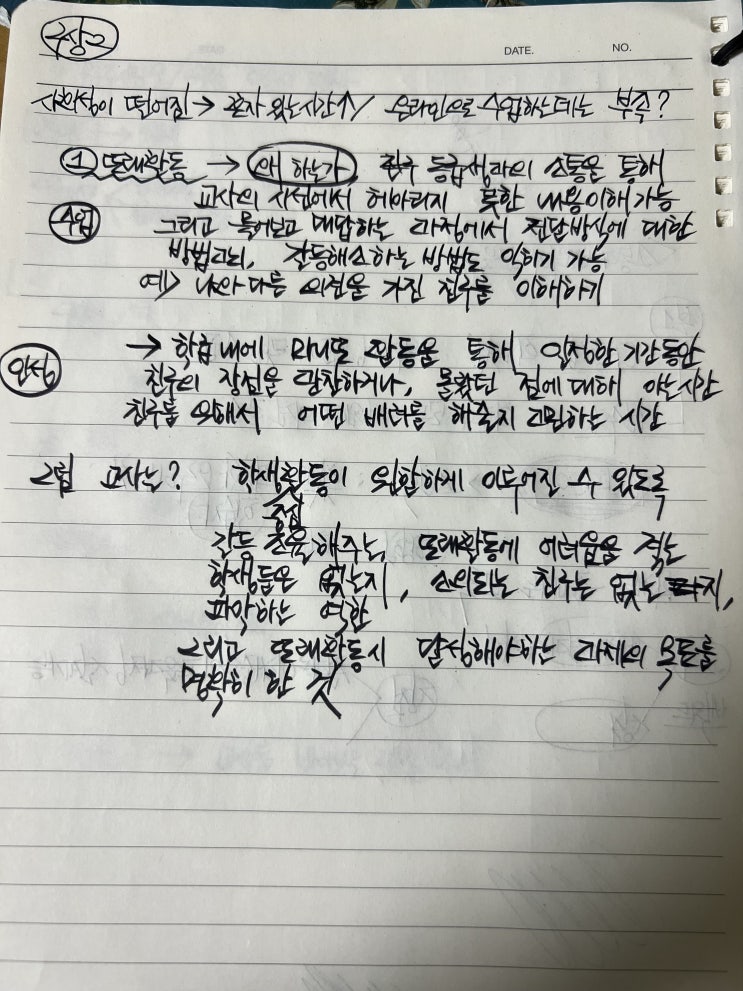 구상2
DATE. NO.
사회성이 떨어짐 → 혼자 있는시간↑ / 온라인으로 수업하는데는 부족?
① 또래활동 → 왜 하는가 친구 동급생과의 소통을 통해
교사의 시선에서 헤아리지 못한 내용이해 가능
수업 그리고 물어보고 대답하는 과정에서 전달방식에 대한
방법과, 갈등해소하는 방법도 익히기 가능
예> 나와 다른 의견을 가진 친구를 이해하기
인성 → 학급 내에 마니또 활동을 통해 일정한 기간동안
친구의 장점을 칭찬하거나, 몰랐던 점에 대해 아는시간
친구를 위해서 어떤 배려를 해줄지 고민하는 시간
그럼 교사는? 학생활동이 원활하게 이루어질 수 있도록
중심
갈등 조율해주는, 또래활동에 어려움을 겪는
학생들은 없는지, 소외되는 친구는 없는지,
파악하는 역할
그리고 또래활동시 달성해야하는 과제의 목표를
명확히 한 것